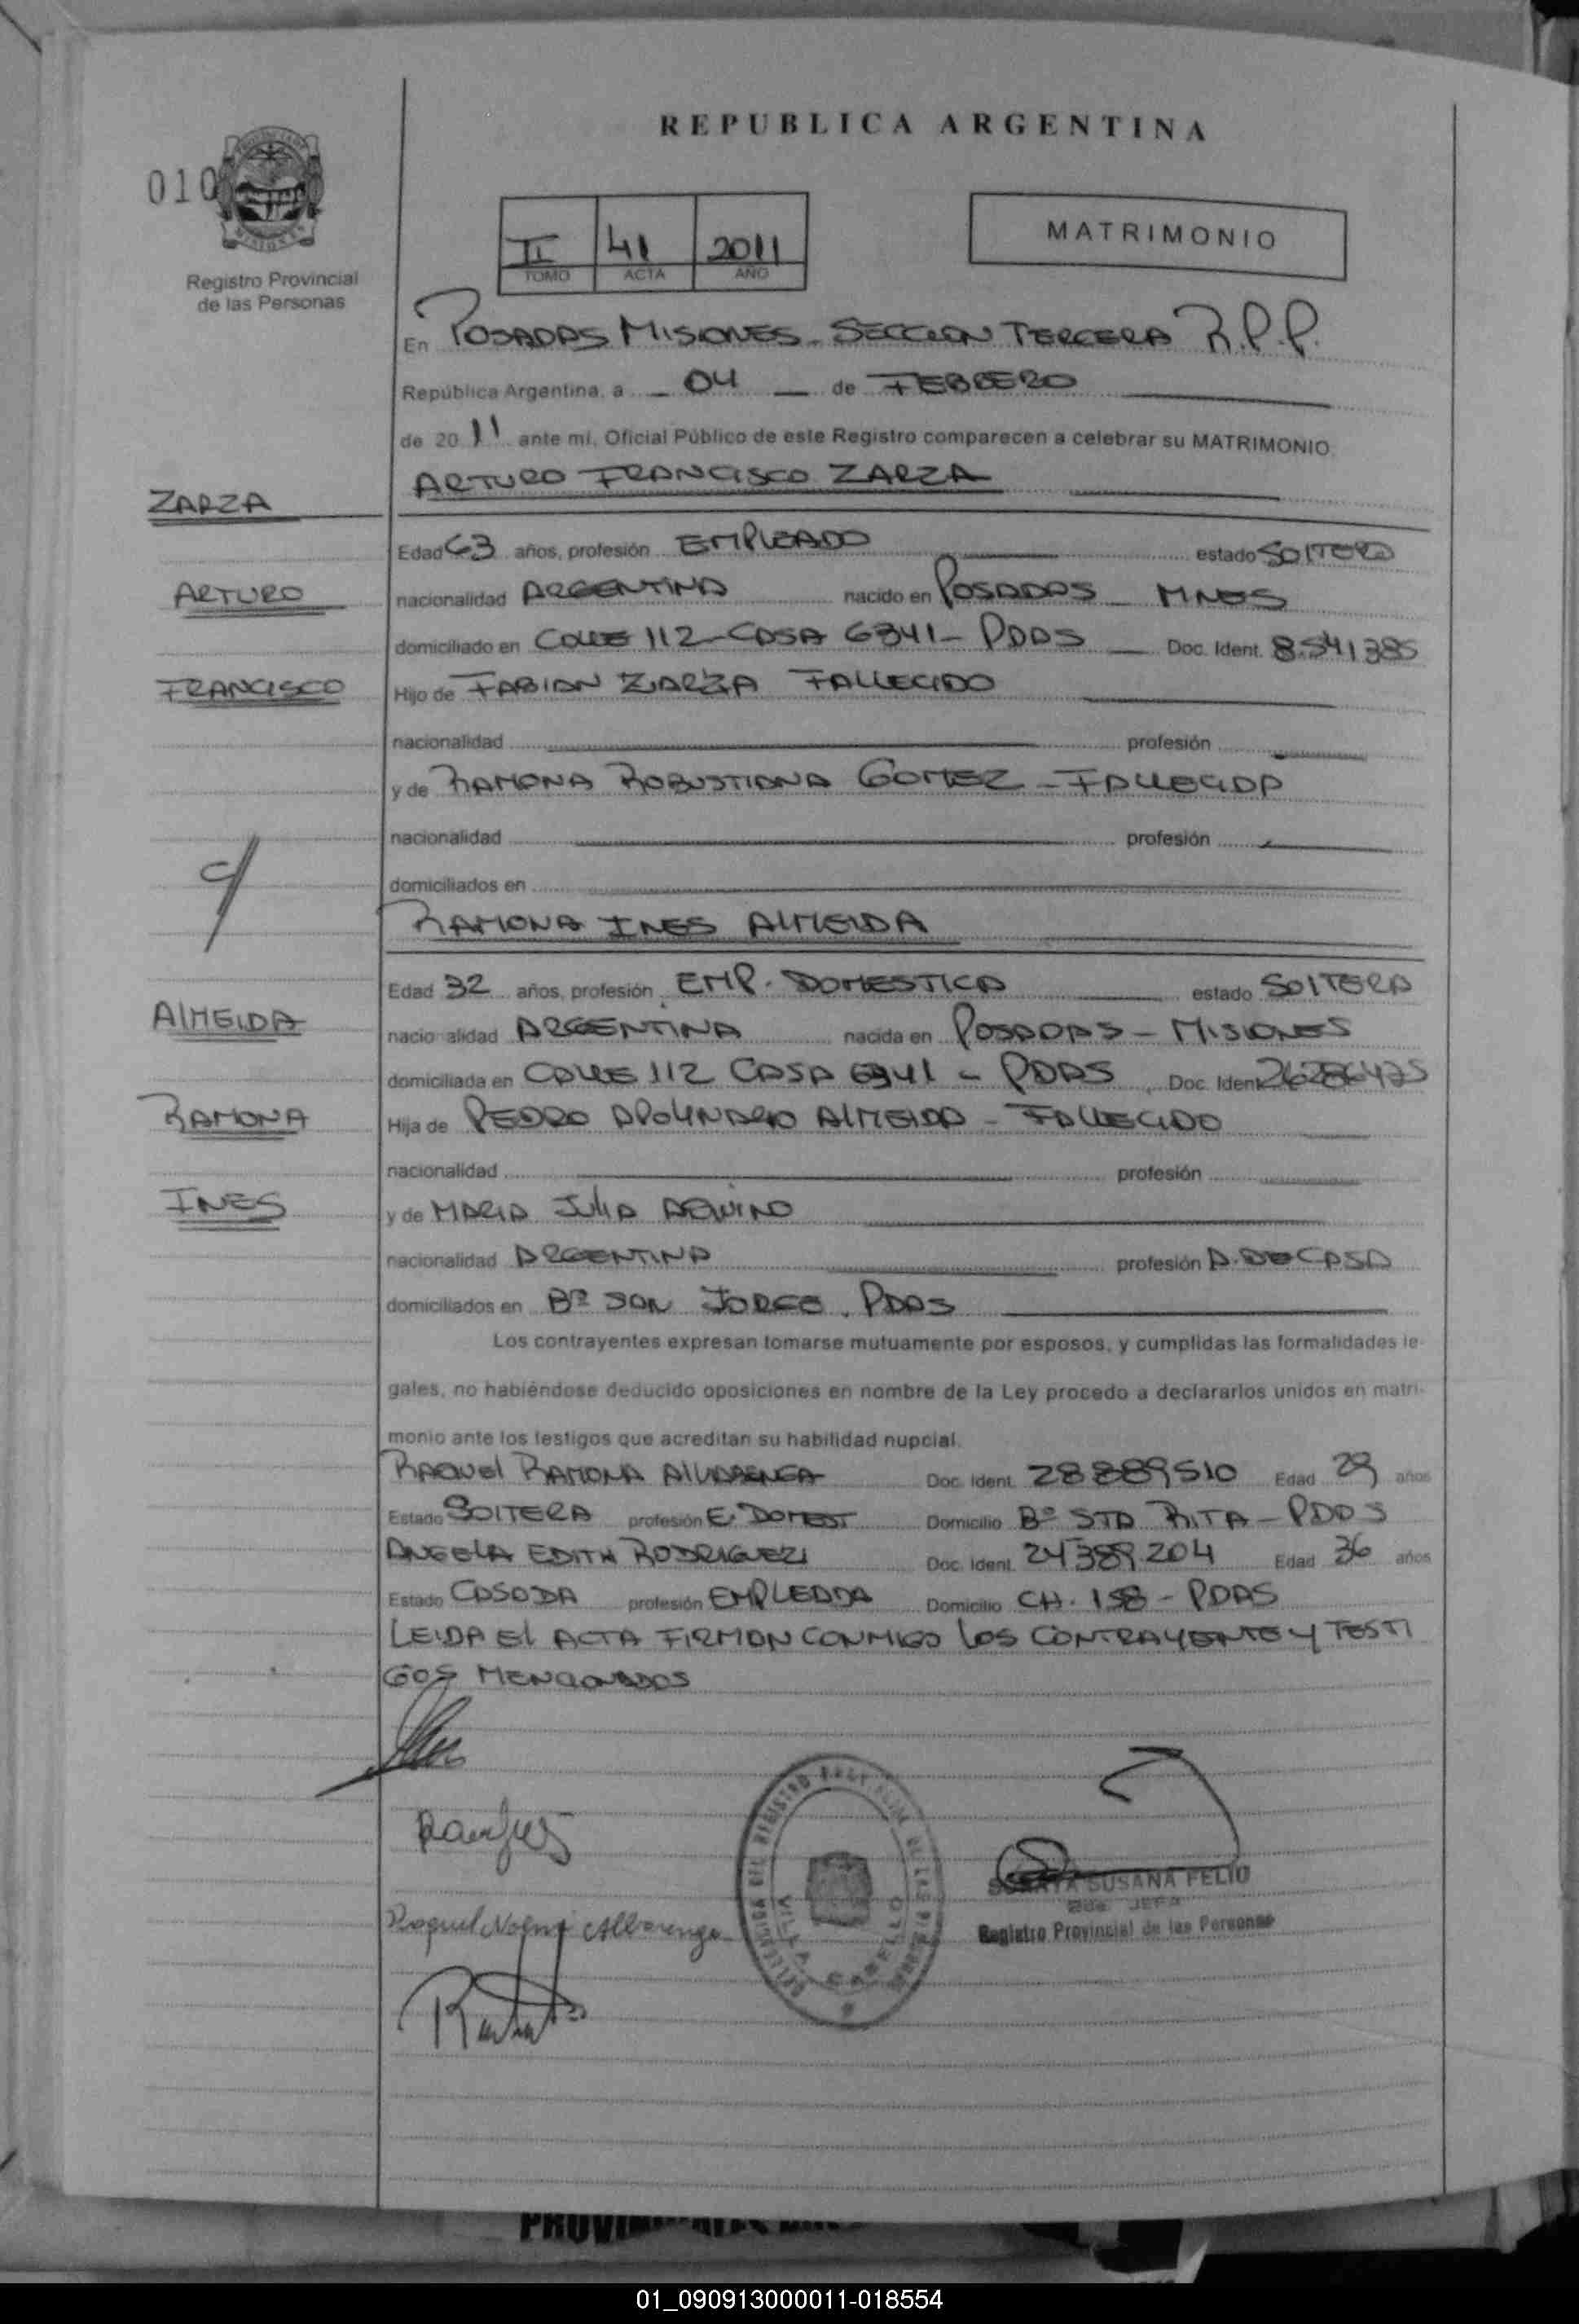 REPUBLICA ARGENTINA
010
MISIONES
Registro Provincial
de las Personas
II 41 2011
TOMO ACTA AÑO
MATRIMONIO
En POSADAS MISIONES - SECCION TERCERA R.P.P.
República Argentina, a 04 de FEBRERO
de 2011 ante mi, Oficial Público de este Registro comparecen a celebrar su MATRIMONIO
ARTURO FRANCISCO ZARZA
ZARZA
Edad 63 años, profesión EMPLEADO estado SOLTERO
ARTURO
nacionalidad ARGENTINA nacido en POSADAS MNES
domiciliado en CALLE 112 - CASA 6341 - PDAS Doc. Ident. 8.541385
FRANCISCO
Hijo de FABIAN ZARZA FALLECIDO
nacionalidad profesión
y de RAMONA ROBUSTIANA GOMEZ - FALLECIDA
nacionalidad profesión
domiciliados en
RAMONA INES ALMEIDA
Edad 32 años, profesión EMP. DOMESTICA estado SOLTERA
ALMEIDA
nacio alidad ARGENTINA nacida en POSADAS - MISIONES
domiciliada en CALLE 112 CASA 6341 - PDAS Doc. Ident
RAMONA
Hija de PEDRO APOLINARIO ALMEIDA - FALLECIDO
nacionalidad profesión
INES
y de MARIA JULIA AQUINO
nacionalidad ARGENTINA profesión A. DE CASA
domiciliados en Bº SAN JORGE. PDAS
Los contrayentes expresan tomarse mutuamente por esposos, y cumplidas las formalidades le-
gales, no habiéndose deducido oposiciones en nombre de la Ley procedo a declararlos unidos en matri-
monio ante los testigos que acreditan su habilidad nupcial.
RAQUEL RAMONA ALVARENGA Doc. Ident. 28889510 Edad 29 años
Estado SOLTERA profesión E. DOMEST Domicilio Bº STA RITA - PDAS
ANGELA EDITH RODRIGUEZ Doc. Ident. 24389.204 Edad 36 años
Estado CASADA profesión EMPLEADA Domicilio CH. 158 - PDAS
LEIDA EL ACTA FIRMAN CONMIGO LOS CONTRAYENTE Y TESTI
GOS MENCIONADOS
Raquel Noemi Albarenga
VILLA CABELLO
SUSANA FELIU
JEFA
Registro Provincial de las Personas
01_090913000011-018554